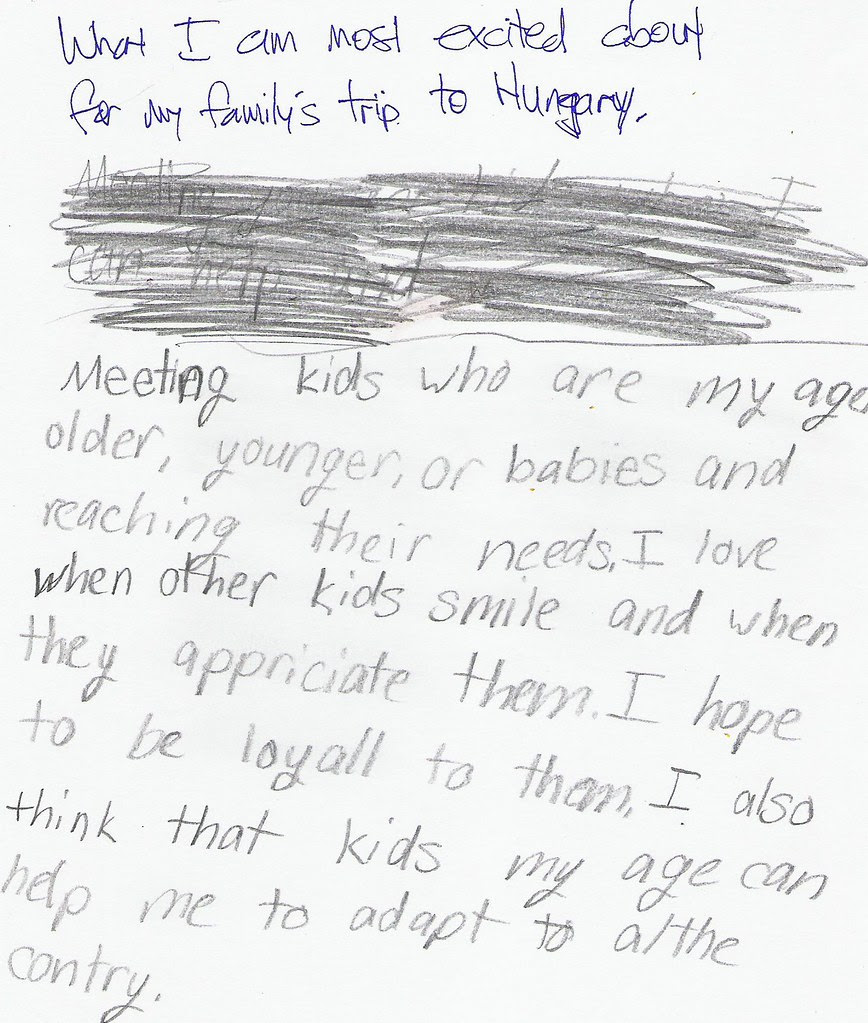 What I am most excited about
for my family's trip to Hungary.
Meeting I
can help and
Meeting kids who are my age
older, younger, or babies and
reaching their needs. I love
when other kids smile and when
they appriciate them. I hope
to be loyall to them. I also
think that kids my age can
help me to adapt to a/the
contry.